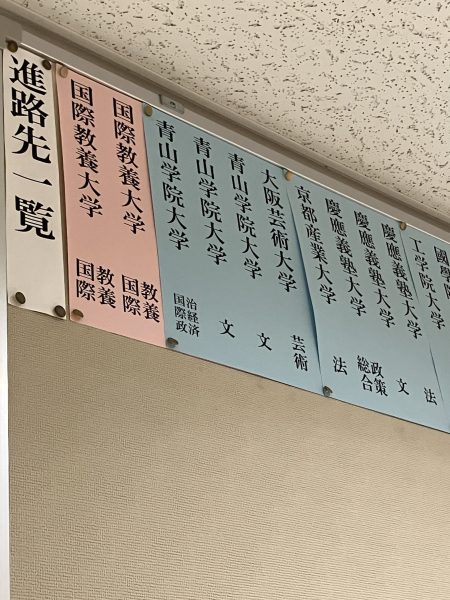 進路先一覧
国際教養大学 国際教養
国際教養大学 国際教養
青山学院大学 国際政治経済
青山学院大学 文
青山学院大学 文
大阪芸術大学 芸術
京都産業大学 法
慶應義塾大学 総合政策
慶應義塾大学 文
慶應義塾大学 法
工学院大学
國學